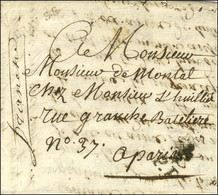 A Monsieur
Monsieur de Montal
Chez Monsieur Lhuillier
rue granche Bateliere
No. 37.
a paris